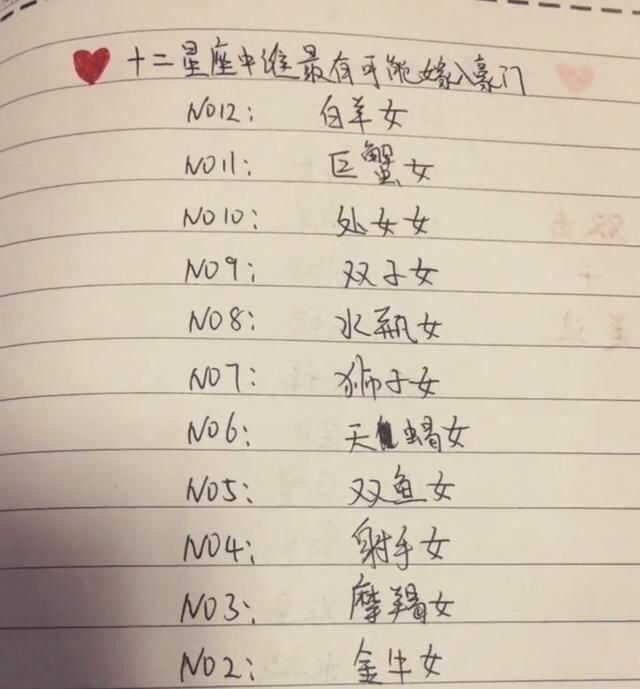 十二星座中谁最有可能嫁入豪门
NO12: 白羊女
NO11: 巨蟹女
NO10: 处女女
NO9: 双子女
NO8: 水瓶女
NO7: 狮子女
NO6: 天蝎女
NO5: 双鱼女
NO4: 射手女
NO3: 摩羯女
NO2: 金牛女